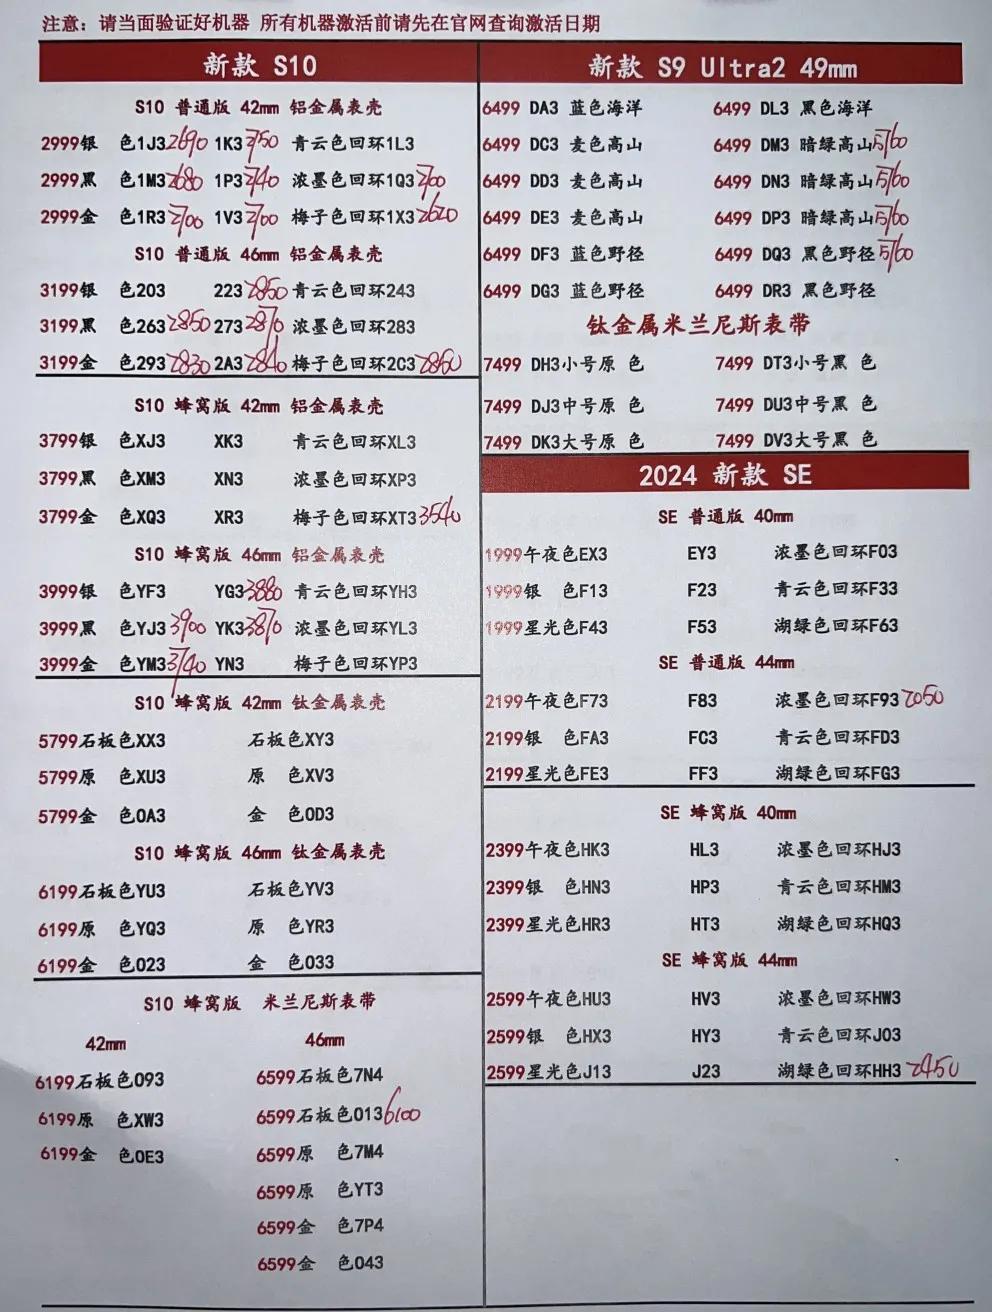 注意：请当面验证好机器 所有机器激活前请先在官网查询激活日期
新款 S10
S10 普通版 42mm 铝金属表壳
2999银 色1J3 2690 1K3 2750 青云色回环1L3
2999黑 色1M3 2680 1P3 2740 浓墨色回环1Q3 2700
2999金 色1R3 2700 1V3 2700 梅子色回环1X3 2620
S10 普通版 46mm 铝金属表壳
3199银 色203 223 2850 青云色回环243
3199黑 色263 2850 273 2870 浓墨色回环283
3199金 色293 2830 2A3 2840 梅子色回环2C3 2860
S10 蜂窝版 42mm 铝金属表壳
3799银 色XJ3 XK3 青云色回环XL3
3799黑 色XM3 XN3 浓墨色回环XP3
3799金 色XQ3 XR3 梅子色回环XT3 3540
S10 蜂窝版 46mm 铝金属表壳
3999银 色YF3 YG3 3880 青云色回环YH3
3999黑 色YJ3 3900 YK3 3870 浓墨色回环YL3
3999金 色YM3 3740 YN3 梅子色回环YP3
S10 蜂窝版 42mm 钛金属表壳
5799石板色XX3 石板色XY3
5799原 色XU3 原 色XV3
5799金 色0A3 金 色0D3
S10 蜂窝版 46mm 钛金属表壳
6199石板色YU3 石板色YV3
6199原 色YQ3 原 色YR3
6199金 色023 金 色033
S10 蜂窝版 米兰尼斯表带
42mm 46mm
6199石板色093 6599石板色7N4
6199原 色XW3 6599石板色013 6100
6199金 色0E3 6599原 色7M4
6599原 色YT3
6599金 色7P4
6599金 色043
新款 S9 Ultra2 49mm
6499 DA3 蓝色海洋 6499 DL3 黑色海洋
6499 DC3 麦色高山 6499 DM3 暗绿高山 5760
6499 DD3 麦色高山 6499 DN3 暗绿高山 5760
6499 DE3 麦色高山 6499 DP3 暗绿高山 5760
6499 DF3 蓝色野径 6499 DQ3 黑色野径 5760
6499 DG3 蓝色野径 6499 DR3 黑色野径
钛金属米兰尼斯表带
7499 DH3小号原 色 7499 DT3小号黑 色
7499 DJ3中号原 色 7499 DU3中号黑 色
7499 DK3大号原 色 7499 DV3大号黑 色
2024 新款 SE
SE 普通版 40mm
1999午夜色EX3 EY3 浓墨色回环F03
1999银 色F13 F23 青云色回环F33
1999星光色F43 F53 湖绿色回环F63
SE 普通版 44mm
2199午夜色F73 F83 浓墨色回环F93 2050
2199银 色FA3 FC3 青云色回环FD3
2199星光色FE3 FF3 湖绿色回环FG3
SE 蜂窝版 40mm
2399午夜色HK3 HL3 浓墨色回环HJ3
2399银 色HN3 HP3 青云色回环HM3
2399星光色HR3 HT3 湖绿色回环HQ3
SE 蜂窝版 44mm
2599午夜色HU3 HV3 浓墨色回环HW3
2599银 色HX3 HY3 青云色回环J03
2599星光色J13 J23 湖绿色回环HH3 2450